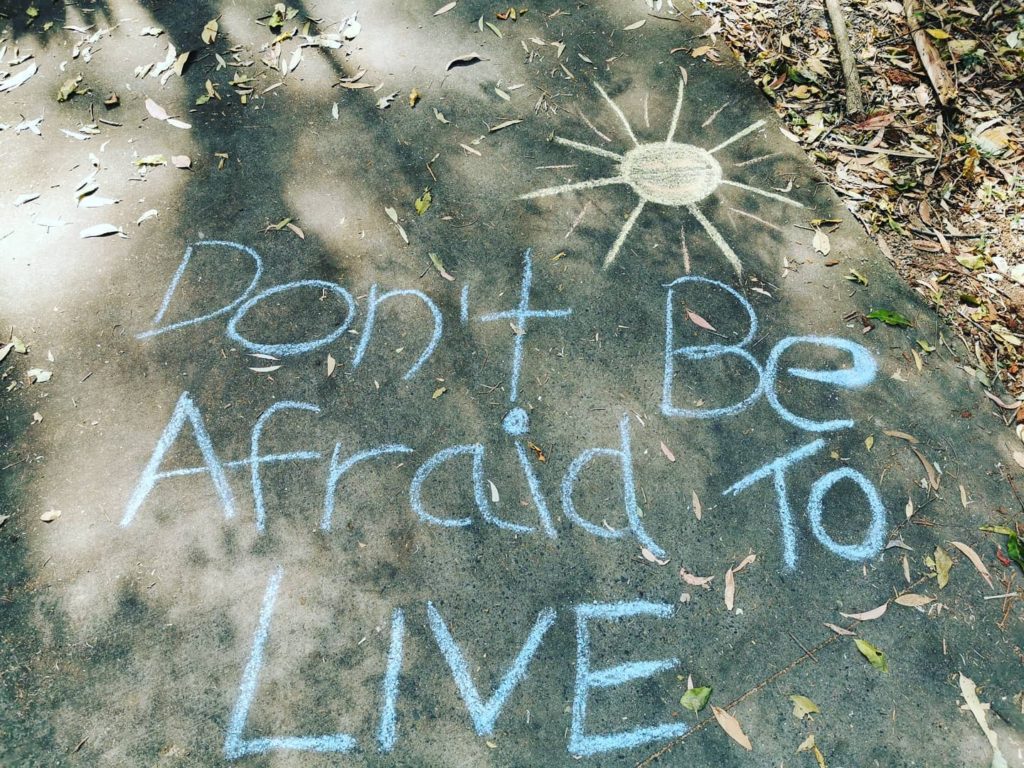 Don't Be
Afraid To
LIVE